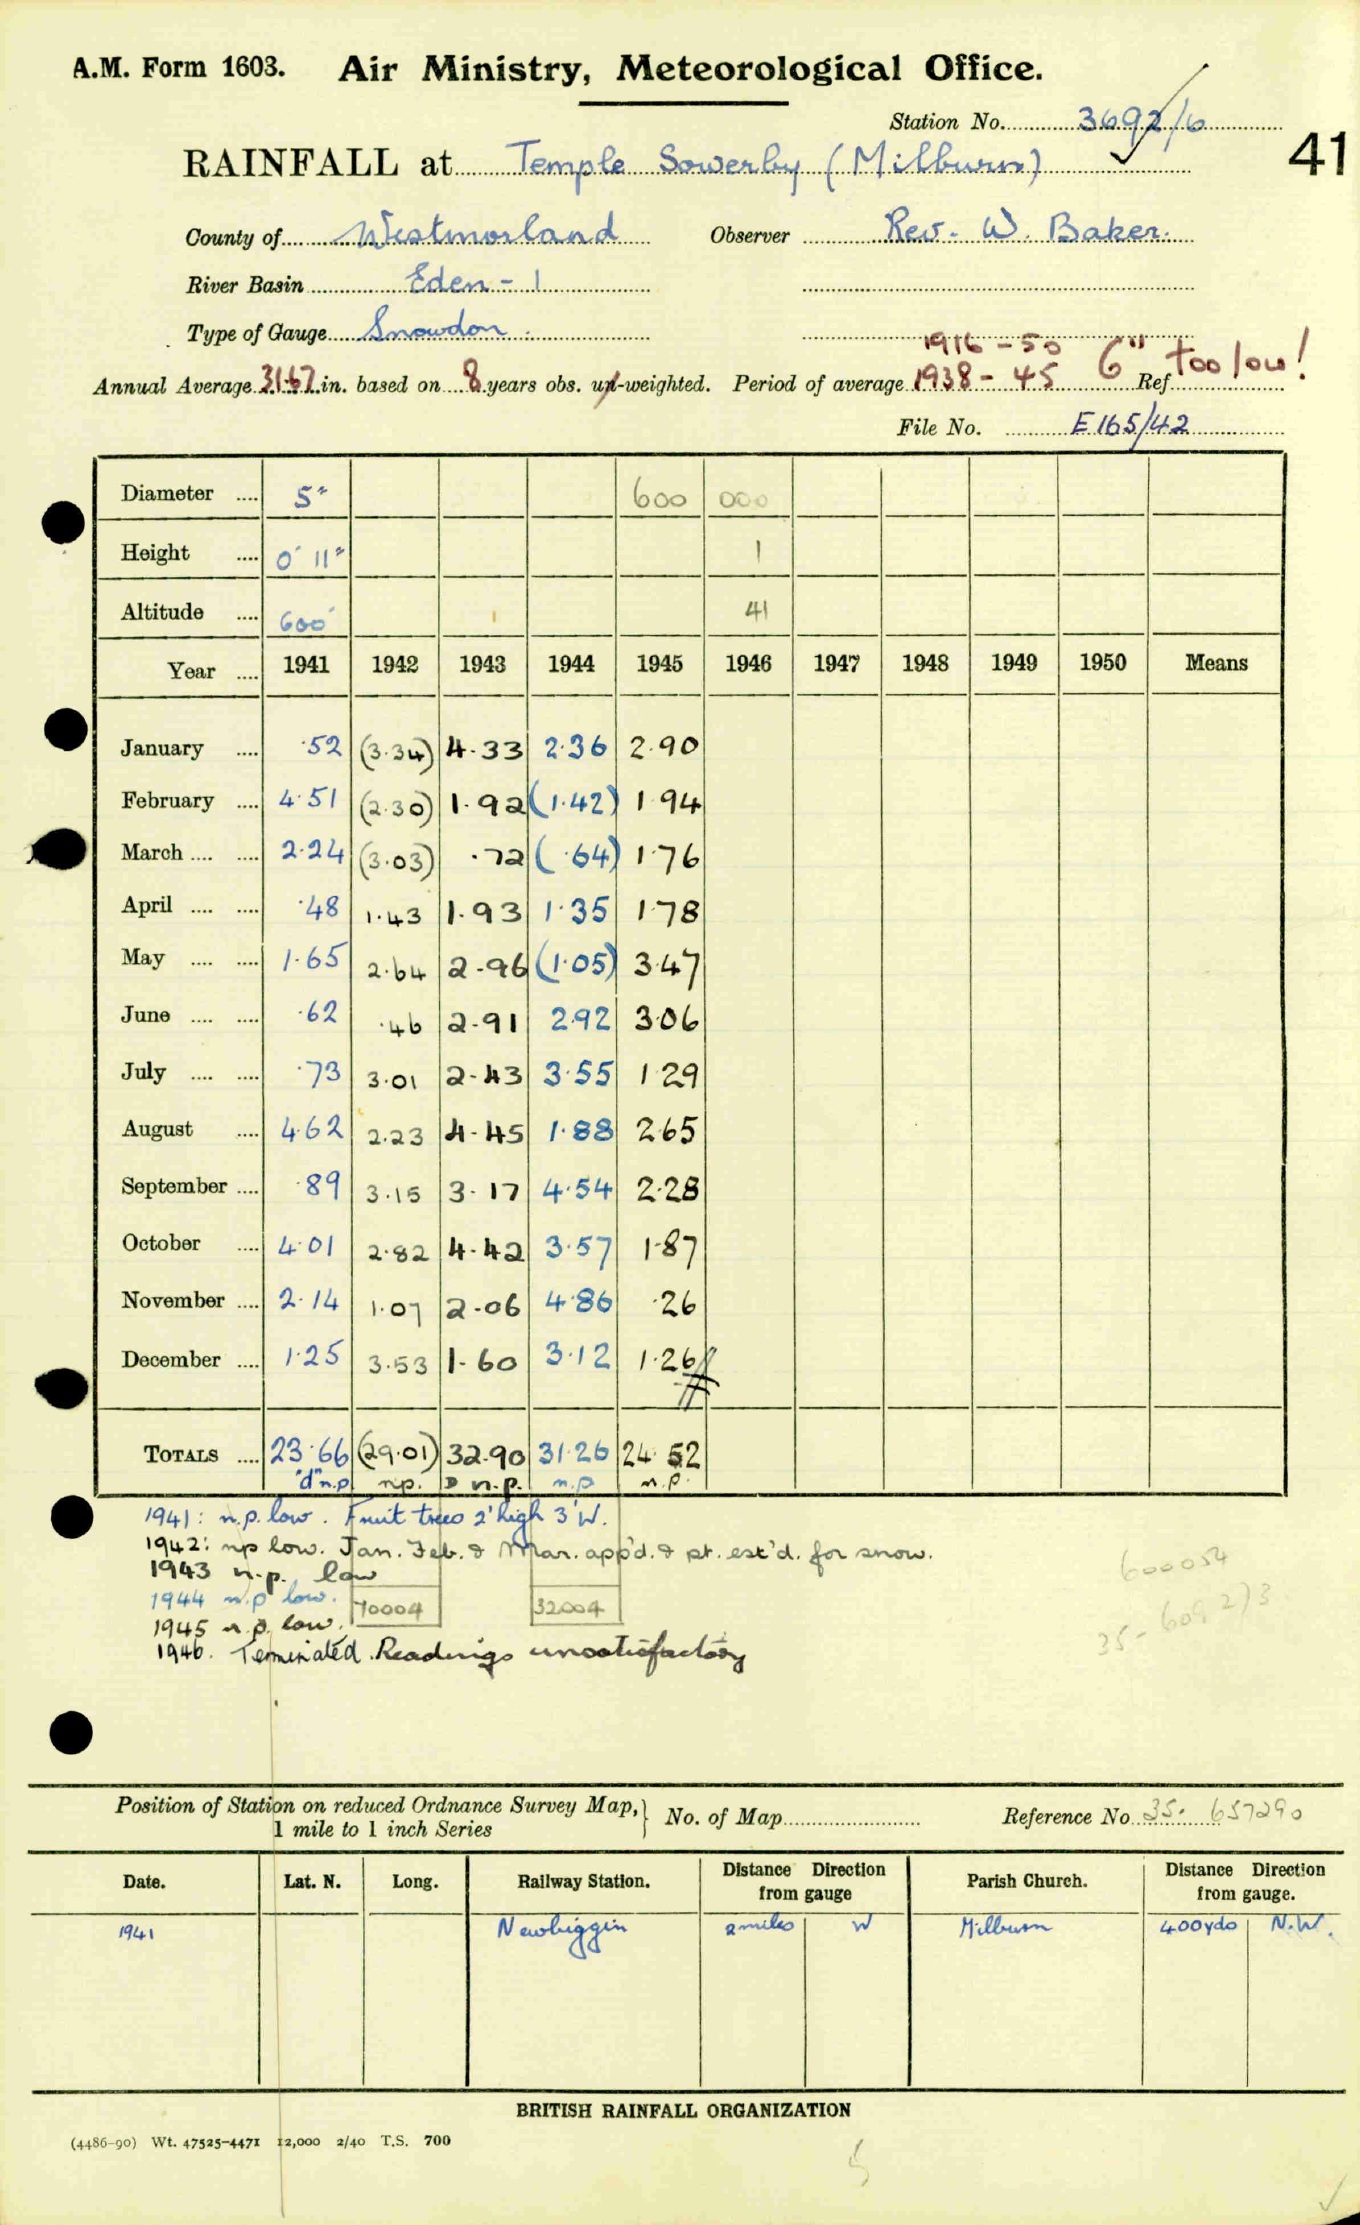 A.M. Form 1603. Air Ministry, Meteorological Office.
Station No. 3692/6
41
RAINFALL at Temple Sowerby (Milburn)
County of Westmorland Observer Rev. W. Baker.
River Basin Eden - 1
Type of Gauge Snowdon
1916 - 50 6" too low!
Annual Average 31.67 in. based on 8 years obs. un-weighted. Period of average 1938 - 45 Ref
File No. E165/42
Diameter .... 5" 600 000
Height .... 0' 11" 1
Altitude .... 600' 41
Year .... 1941 1942 1943 1944 1945 1946 1947 1948 1949 1950 Means
January .... ·52 (3·34) 4·33 2·36 2·90
February .... 4·51 (2·30) 1·92 (1·42) 1·94
March .... .... 2·24 (3·03) ·72 (·64) 1·76
April .... .... ·48 1·43 1·93 1·35 1·78
May .... .... 1·65 2·64 2·96 (1·05) 3·47
June .... .... ·62 ·46 2·91 2·92 3·06
July .... .... ·73 3·01 2·43 3·55 1·29
August .... 4·62 2·23 4·45 1·88 2·65
September .... ·89 3·15 3·17 4·54 2·28
October .... 4·01 2·82 4·42 3·57 1·87
November .... 2·14 1·07 2·06 4·86 ·26
December .... 1·25 3·53 1·60 3·12 1·26
TOTALS .... 23·66 (29·01) 32·90 31·26 24·52
"d" n.p np. D n.p. n.p n.p.
1941: n.p. low. Fruit trees 2' high 3' W.
1942: np low. Jan. Feb. & Mar. app'd. & pt. est'd. for snow.
1943 n.p. low
1944 n.p low.
70004 32004
1945 n.p. low.
1946. Terminated. Readings unsatisfactory
600054
35- 609 273
Position of Station on reduced Ordnance Survey Map, 1 mile to 1 inch Series No. of Map Reference No. 35. 657290
Date. Lat. N. Long. Railway Station. Distance Direction from gauge Parish Church. Distance Direction from gauge.
1941 Newbiggin 2 miles W Milburn 400 yds N.W.
BRITISH RAINFALL ORGANIZATION
(4486-90) Wt. 47525-4471 12,000 2/40 T.S. 700